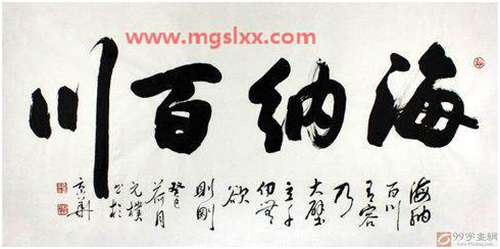 www.mgslxx.com
海納百川
海納
百川
有容
乃
大壁
立千
仞無
欲
則剛
癸巳
荷月
元樸
书於
京華
99字画網